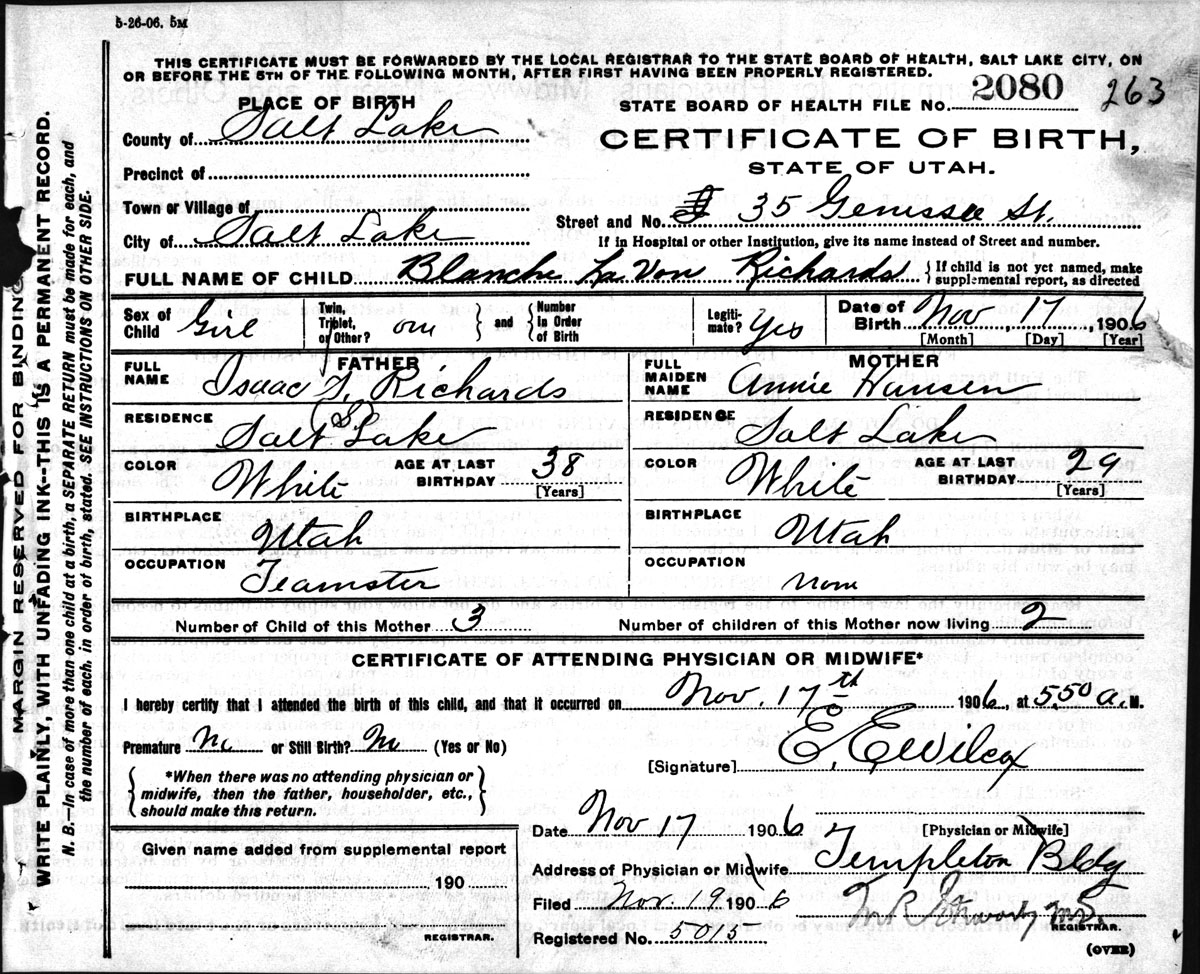 5-26-06. 5M
THIS CERTIFICATE MUST BE FORWARDED BY THE LOCAL REGISTRAR TO THE STATE BOARD OF HEALTH, SALT LAKE CITY, ON
OR BEFORE THE 5TH OF THE FOLLOWING MONTH, AFTER FIRST HAVING BEEN PROPERLY REGISTERED.
STATE BOARD OF HEALTH FILE No. 2080 263
PLACE OF BIRTH
County of Salt Lake
CERTIFICATE OF BIRTH,
STATE OF UTAH.
Precinct of
Town or Village of
Street and No. 35 Genessee St.
City of Salt Lake
If in Hospital or other Institution, give its name instead of Street and number.
FULL NAME OF CHILD Blanche La Von Richards { If child is not yet named, make
supplemental report, as directed
Sex of Child Girl Twin, Triplet, or Other? one } and { Number In Order of Birth Legiti-mate? Yes Date of Birth Nov, 17, 1906
[Month] [Day] [Year]
FATHER MOTHER
FULL NAME Isaac S. Richards FULL MAIDEN NAME Annie Hansen
(S)
RESIDENCE Salt Lake RESIDENCE Salt Lake
COLOR White AGE AT LAST BIRTHDAY 38 [Years] COLOR White AGE AT LAST BIRTHDAY 29 [Years]
BIRTHPLACE Utah BIRTHPLACE Utah
OCCUPATION Teamster OCCUPATION None
Number of Child of this Mother 3 Number of children of this Mother now living 2
CERTIFICATE OF ATTENDING PHYSICIAN OR MIDWIFE*
I hereby certify that I attended the birth of this child, and that it occurred on Nov. 17th 1906, at 550 a. M.
Premature No or Still Birth? No (Yes or No)
[Signature] E. E Wilcox
{ *When there was no attending physician or
midwife, then the father, householder, etc.,
should make this return. }
Date Nov 17 1906 [Physician or Midwife]
Given name added from supplemental report
Address of Physician or Midwife Templeton Bldg
190
Filed Nov. 19 1906
REGISTRAR.
REGISTRAR.
Registered No. 5015
(OVER)
MARGIN RESERVED FOR BINDING
WRITE PLAINLY, WITH UNFADING INK—THIS IS A PERMANENT RECORD.
N. B.—In case of more than one child at a birth, a SEPARATE RETURN must be made for each, and
the number of each, in order of birth, stated. SEE INSTRUCTIONS ON OTHER SIDE.